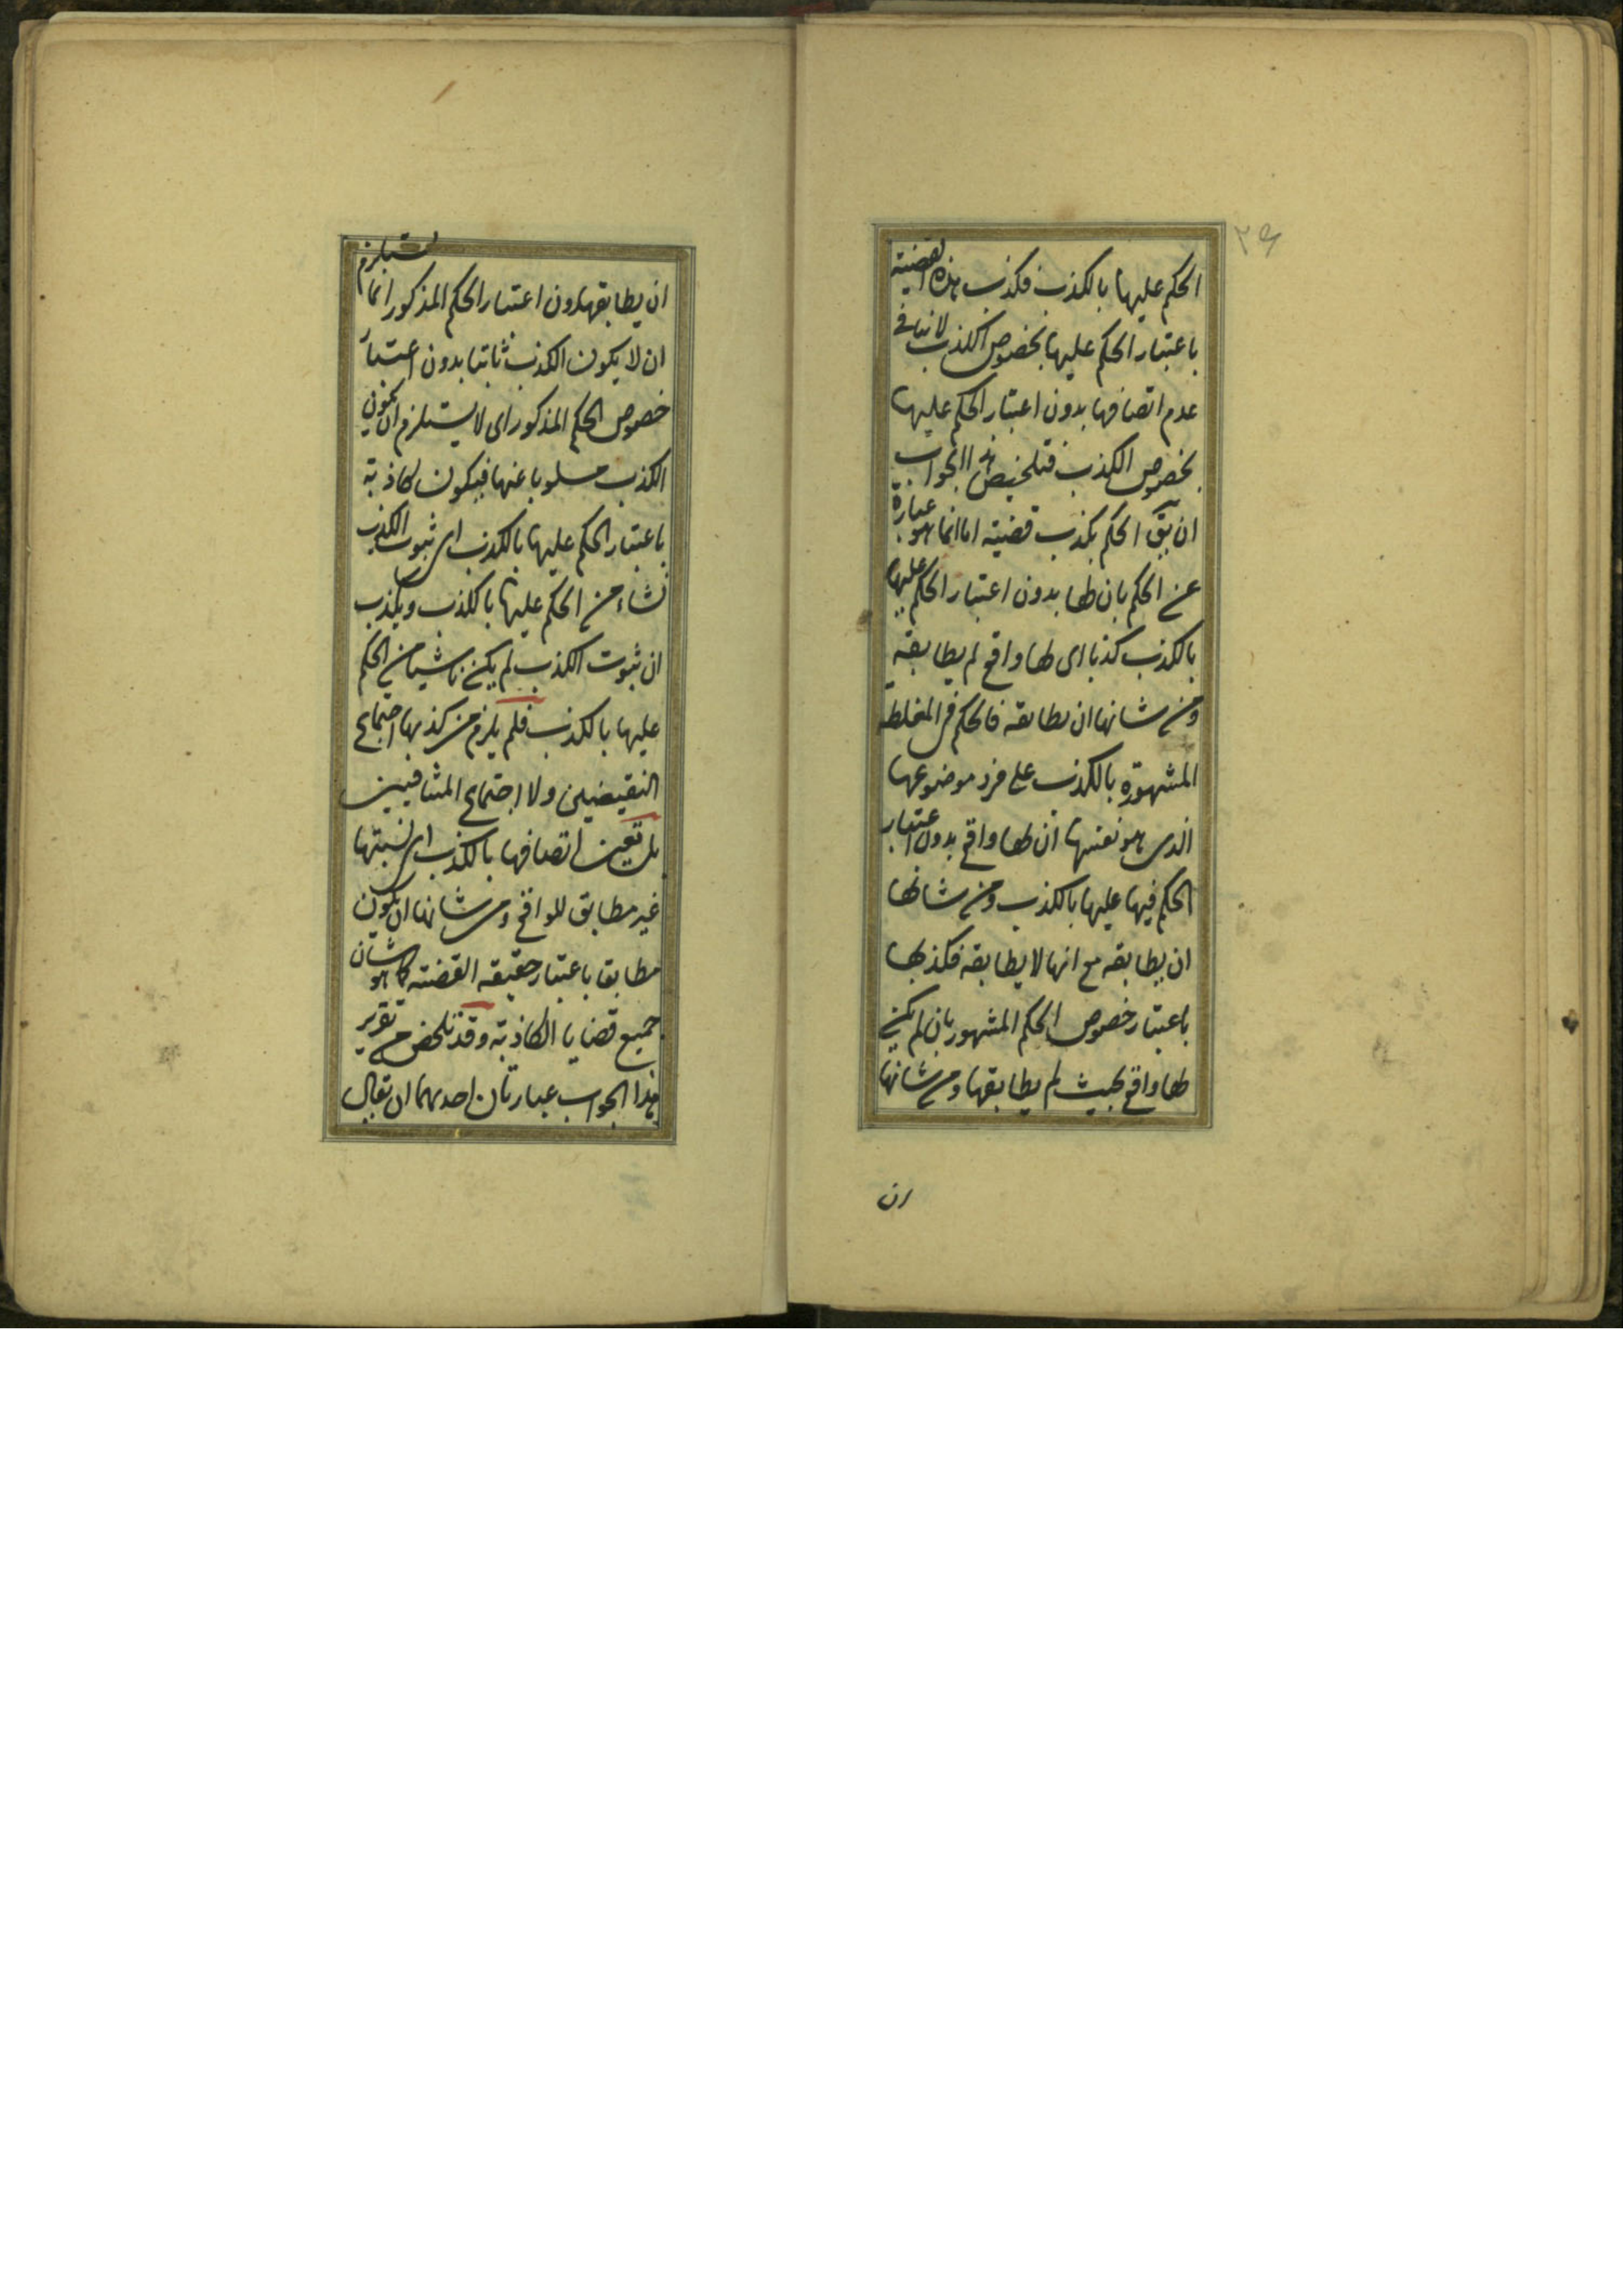 ٢٩
الحكم عليها بالكذب فكذب هذه القضية
باعتبار الحكم عليها بخصوص الكذب لا ينافى
عدم اتصافها بدون اعتبار الحكم عليها
بخصوص الكذب فتلخيص هذا الجواب
ان يق الحكم بكذب قضية اما انما هو عبارة
عن الحكم بان لها بدون اعتبار الحكم عليها
بالكذب كذبا اى لها واقع لم يطابقه
ومن شانها ان يطابقه فالحكم فى المغلطة
المشهورة بالكذب على فرد موضوعها
الذى هو نفسها ان لها واقع بدون اعتبار
الحكم فيها عليها بالكذب ومن شانها
ان يطابقه مع انها لا يطابقه فكذبها
باعتبار خصوص الحكم المشهور بان لم يكن
لها واقع بحيث لم يطابقها ومن شانها
ان
ان يطابقها بدون اعتبار الحكم المذكور انما يستلزم
ان لا يكون الكذب ثابتا بدون اعتبار
خصوص الحكم المذكور اى لا يستلزم ان يكون
الكذب مسلوبا عنها فيكون كاذبة
باعتبار الحكم عليها بالكذب اى ثبوت الكذب
نشاء من الحكم عليها بالكذب ويكذب
ان ثبوت الكذب لم يكن ناشيا من الحكم
عليها بالكذب فلم يلزم من كذبها اجتماع
النقيضين ولا اجتماع المتنافيين
بل تعين اتصافها بالكذب اى نسبتها
غير مطابق للواقع ومن شانها ان يكون
مطابقا باعتبار حقيقه القضية كما هو شان
جميع قضايا الكاذبة وقد تلخص من تقرير
هذا الجواب عبارتان احديهما ان يقال